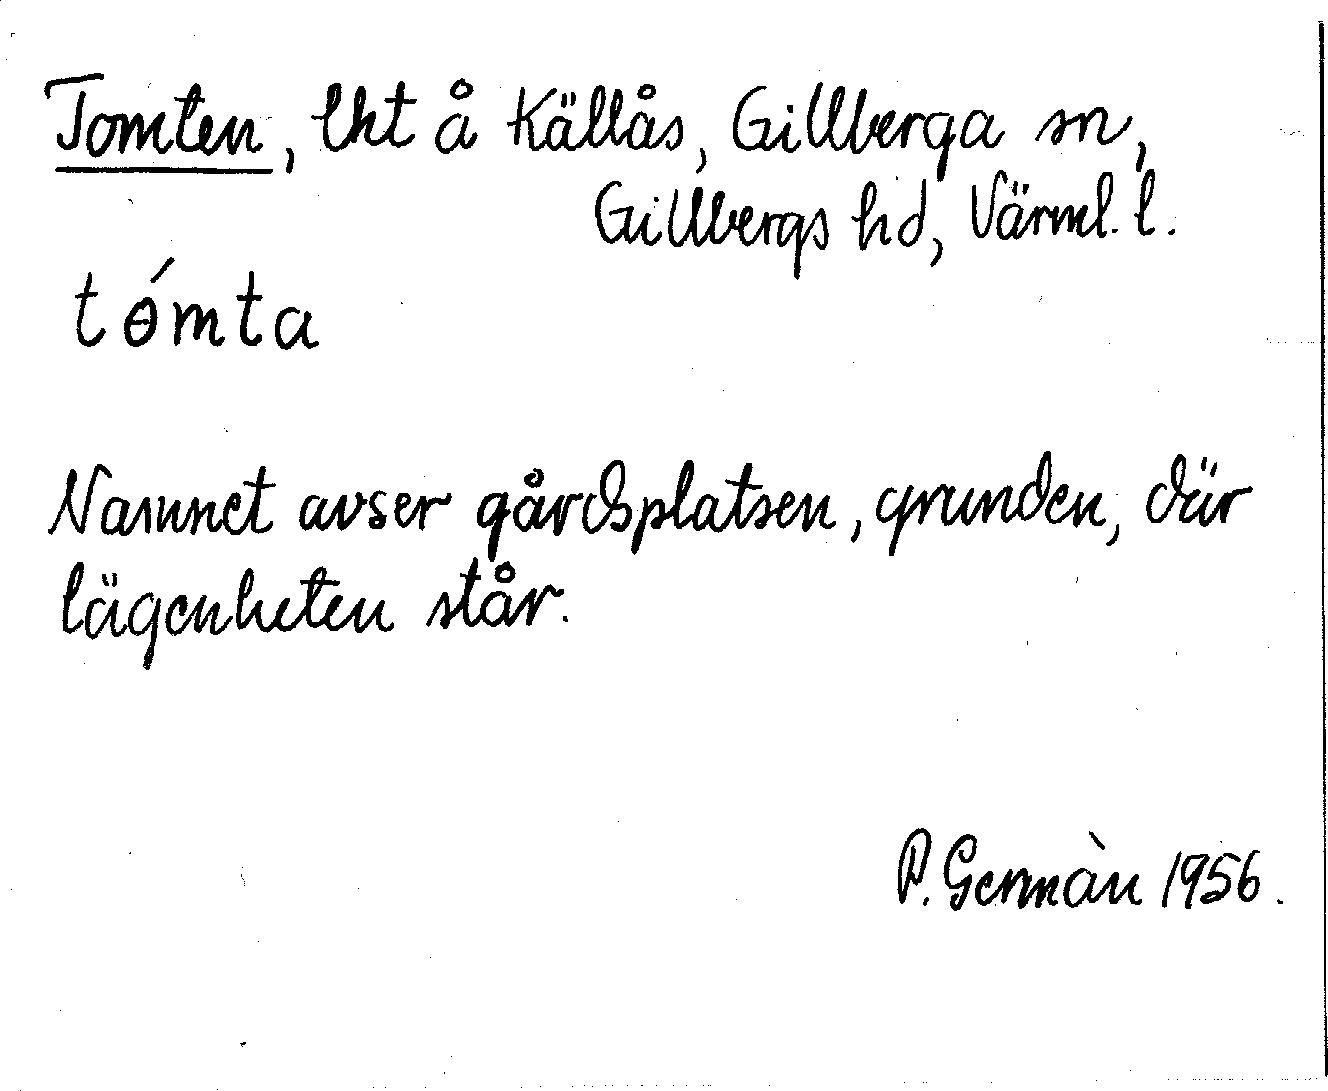 Tomten, lht å Källås, Gillberga sn,
Gillbergs hd, Värml. l.
tɵ́mta
Namnet avser gårdsplatsen, grunden, där
lägenheten står.
P. Germàn 1956.